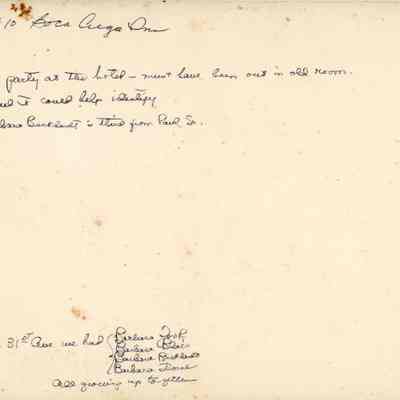 10 Boca Ciega Inn
party at the hotel - must have been out in old room.
could help identify
Barbara Burkhardt is third from Paul Sr.
31st Ave we had Barbara
Barbara Blair
Barbara Burkhardt
Barbara
All growing up together